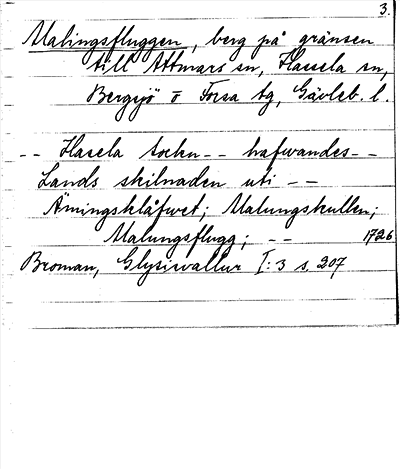 3.
Malingsfluggen, berg på gränsen
till Attmars sn, Hassela sn,
Bergsjö o Forsa tg, Gävleb. l.
-- Hasela sochn -- hafwandes --
Lands skilnaden uti --
Ämingsklåfwet; Malungskullen;
Malungsflugg; -- 1726
Broman, Glysiwallur I:3 s. 207